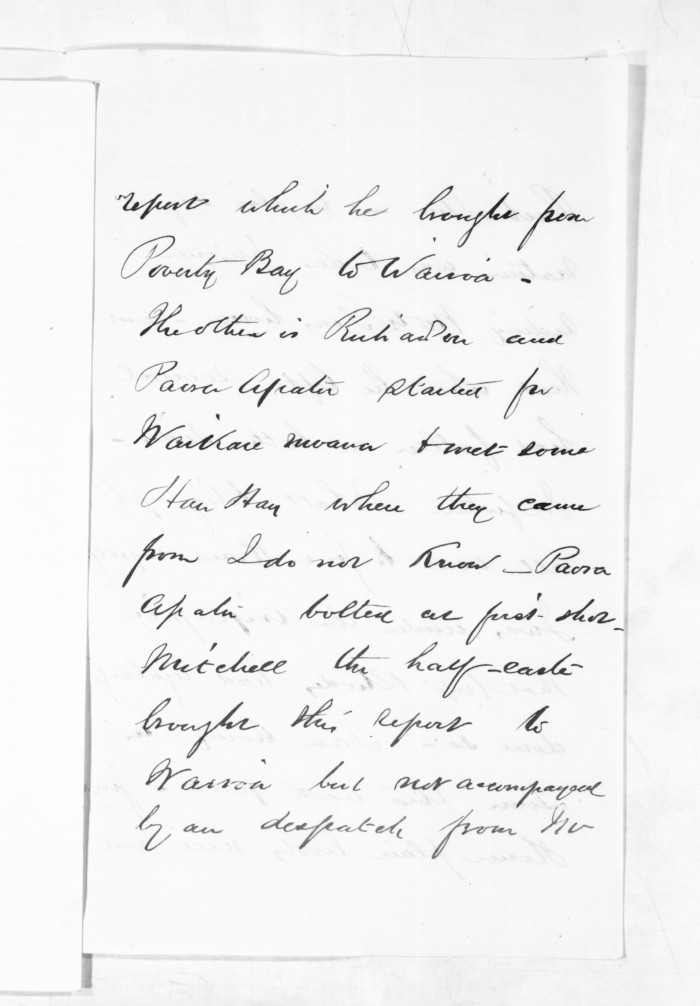 report which he brought from
Poverty Bay to Wairoa -
The other is Richardson and
Paora Apatu started for
Waikare moana & met some
Hau Hau where they came
from I do not know - Paora
Apatu bolted at first shot -
Mitchell the half-caste
brought this report to
Wairoa but not accompanyed
by an despatch from Mr